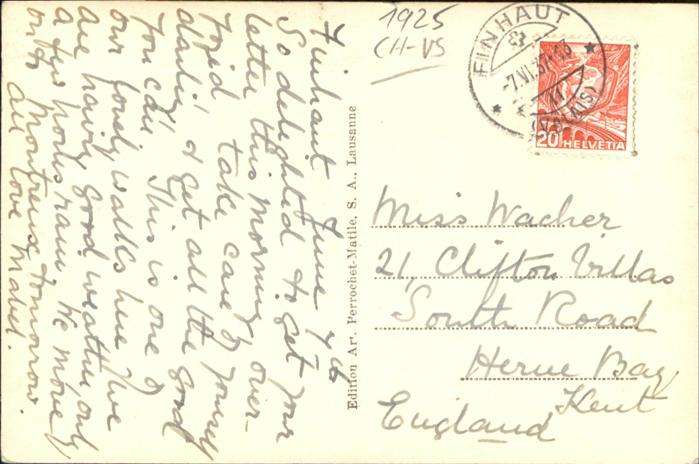 Finhaut June 7th
So delighted to get your
letter this morning
take care of yourself
darling & get all the good
you can. This is one of
our lovely walks here & we
are having good weather only
a few hours rain. We move
on to Montreux tomorrow
All love Mabel.
Edition Art. Perrochet-Matile, S. A., Lausanne
1925
CH-VS
FINHAUT
-7.VI.37
(VALAIS)
20 HELVETIA
Miss Wacher
21, Clifton Villas
South Road
Herne Bay
Kent
England